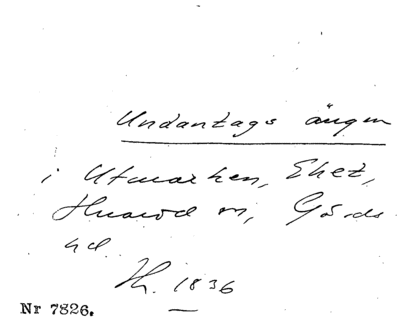 Undantags ängen
i Utmarken, Ehet,
Huaröd sn, Gärds
hd.
Th. 1836
Nr 7826.